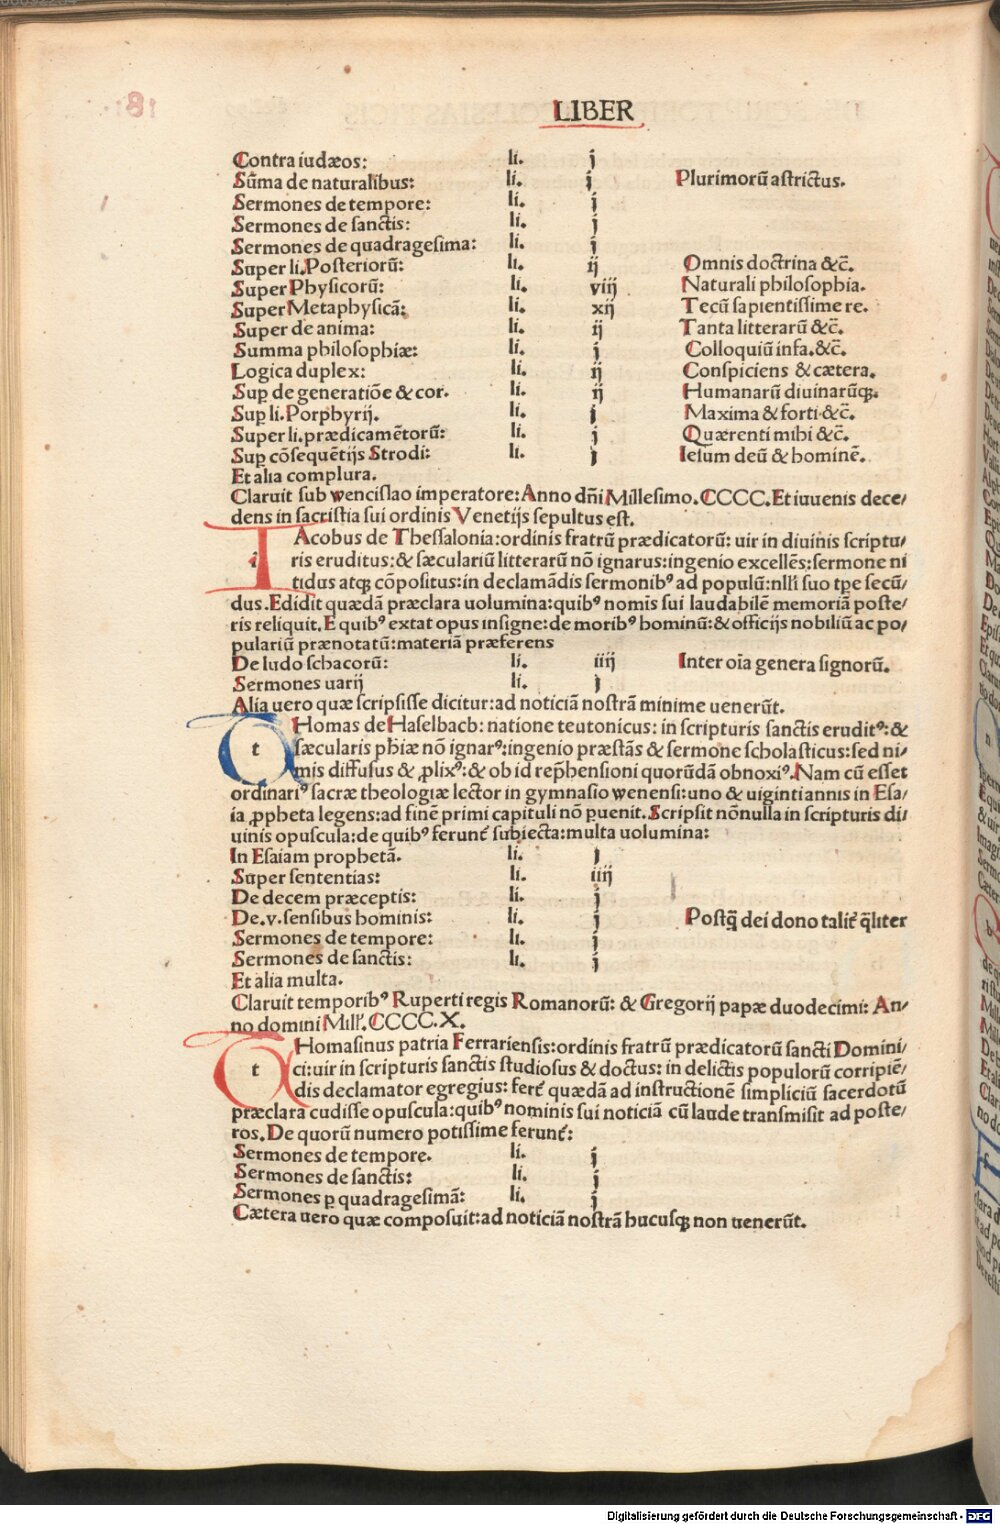 LIBER
Contra iudæos: li. j
Sũma de naturalibus: li. j Plurimorũ astrictus.
Sermones de tempore: li. j
Sermones de sanctis: li. j
Sermones de quadragesima: li. j
Super li. Posteriorũ: li. ij Omnis doctrina &c̃.
Super Physicorũ: li. viij Naturali philosophia.
Super Metaphysicã: li. xij Tecũ sapientissime re.
Super de anima: li. ij Tanta litterarũ &c̃.
Summa philosophiæ: li. j Colloquiũ infa.&c̃.
Logica duplex: li. ij Conspiciens & cætera.
Suꝑ de generatiõe & cor. li. ij Humanarũ diuinarũqꝫ.
Suꝑ li. Porphyrij. li. j Maxima & forti &c̃.
Super li. prædicamẽtorũ: li. j Quærenti mihi &c̃.
Suꝑ cõsequẽtijs Strodi: li. j Iesum deũ & hominẽ.
Et alia complura.
Claruit sub wencislao imperatore: Anno dñi Millesimo. CCCC. Et iuuenis dece/
dens in sacristia sui ordinis Venetijs sepultus est.
IAcobus de Thessalonia: ordinis fratrũ prædicatorũ: uir in diuinis scriptu/
ris eruditus: & sæculariũ litterarũ nõ ignarus: ingenio excellẽs: sermone ni
tidus atqꝫ cõpositus: in declamãdis sermonibꝰ ad populũ: nlli suo tꝑe secũ/
dus. Edidit quædã præclara uolumina: quibꝰ nomĩs sui laudabilẽ memoriã poste/
ris reliquit. E quibꝰ extat opus insigne: de moribꝰ hominũ: & officijs nobiliũ ac po/
pulariũ prænotatũ: materiã præferens
De ludo schacorũ: li. iiij Inter oĩa genera signorũ.
Sermones uarij li. j
Alia uero quæ scripsisse dicitur: ad noticiã nostrã minime uenerũt.
tHomas de Haselbach: natione teutonicus: in scripturis sanctis eruditꝰ: &
sæcularis phiæ nõ ignarꝰ: ingenio præstãs & sermone scholasticus: sed ni/
mis diffusus & ꝓlixꝰ: & ob id rep̃hensioni quorũdã obnoxiꝰ. Nam cũ esset
ordinariꝰ sacræ theologiæ lector in gymnasio wenensi: uno & uigintiannis in Esa/
ia ꝓpheta legens: ad finẽ primi capituli nõ ꝑuenit. Scripsit nõnulla in scripturis di/
uinis opuscula: de quibꝰ ferunť subiecta: multa uolumina:
In Esaiam prophetã. li. j
Super sententias: li. iiij
De decem præceptis: li. j
De .v. sensibus hominis: li. j Postq̃ dei dono taliť q̃liter
Sermones de tempore: li. j
Sermones de sanctis: li. j
Et alia multa.
Claruit temporibꝰ Ruperti regis Romanorũ: & Gregorij papæ duodecimi: An/
no domini Mill'. CCCC. X.
tHomasinus patria Ferrariensis: ordinis fratrũ prædicatorũ sancti Domini/
ci: uir in scripturis sanctis studiosus & doctus: in delictis populorũ corripiẽ/
dis declamator egregius: ferť quædã ad instructionẽ simpliciũ sacerdotũ
præclara cudisse opuscula: quibꝰ nominis sui noticiã cũ laude transmisit ad poste/
ros. De quorũ numero potissime ferunť:
Sermones de tempore. li. j
Sermones de sanctis: li. j
Sermones ꝑ quadragesimã: li. j
Cætera uero quæ composuit: ad noticiã nostrã hucusqꝫ non uenerũt.
Digitalisierung gefördert durch die Deutsche Forschungsgemeinschaft - DFG